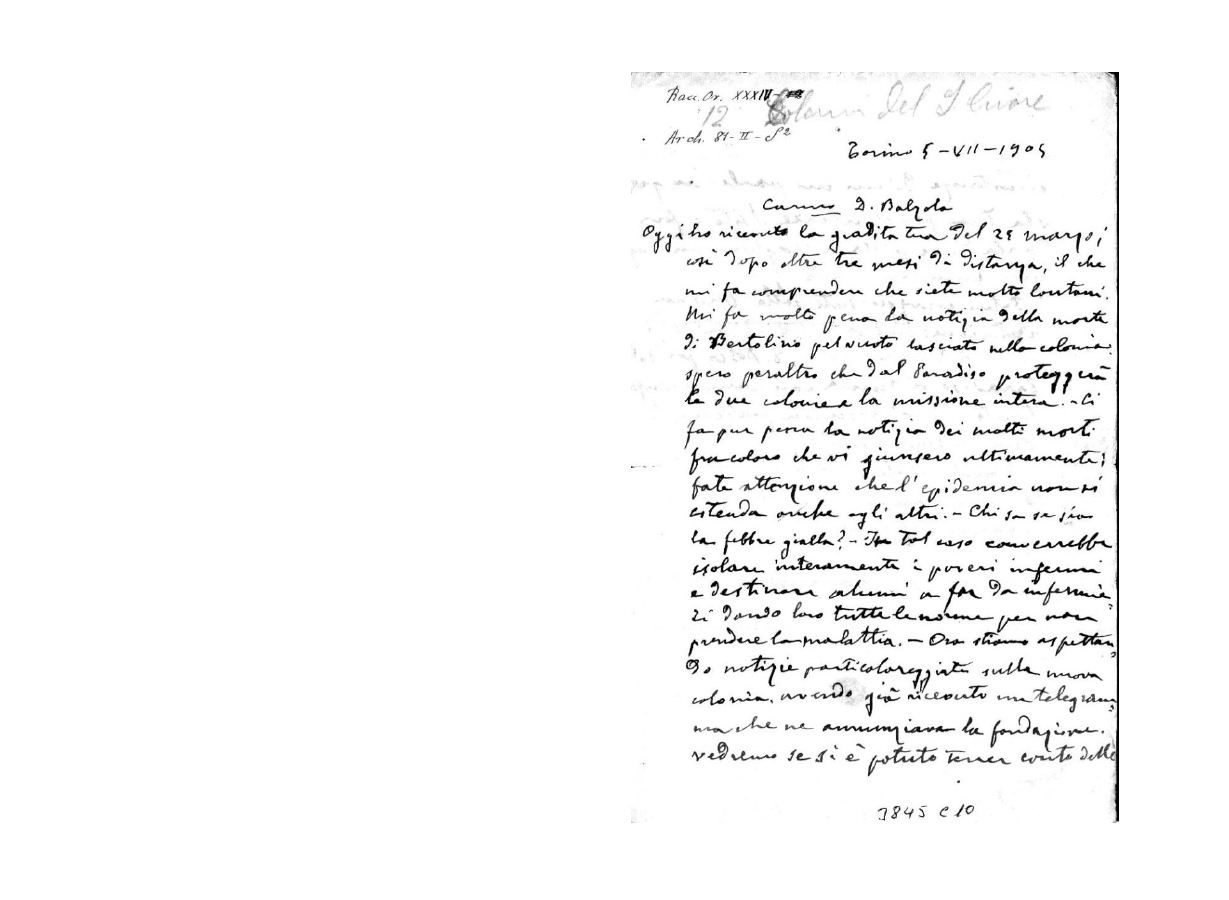 Racc. Or. XXXIV-
12 Colonia Del S Cuore
Arch. 81-II-S2
Torino 5-VII-1905
Carmo D. Balzola
Oggi ho ricevuto la gradita tua del 25 marzo;
così dopo oltre tre mesi di distanza, il che
mi fa comprendere che siete molto lontani.
Mi fa molto pena la notizia della morte
di Bertolino pel vuoto lasciato nella colonia.
spero peraltro che dal Paradiso proteggerà
le due colonie e la missione intera. - Ci
fa pur pena la notizia dei molti morti
fra coloro che vi giunsero ultimamente;
fate attenzione che l'epidemia non si
estenda anche agli altri. - Chi sa se sia
la febbre gialla? - In tal caso converrebbe
isolare interamente i poveri infermi
e destinare alcuni a far da infermie-
ri dando loro tutte le norme per non
prendere la malattia. - Ora stiamo aspettan-
do notizie particolareggiate sulla nuova
colonia, avendo già ricevuto un telegram-
ma che ne annunziava la fondazione.
vedremo se si è potuto tener conto delle
3845 C10